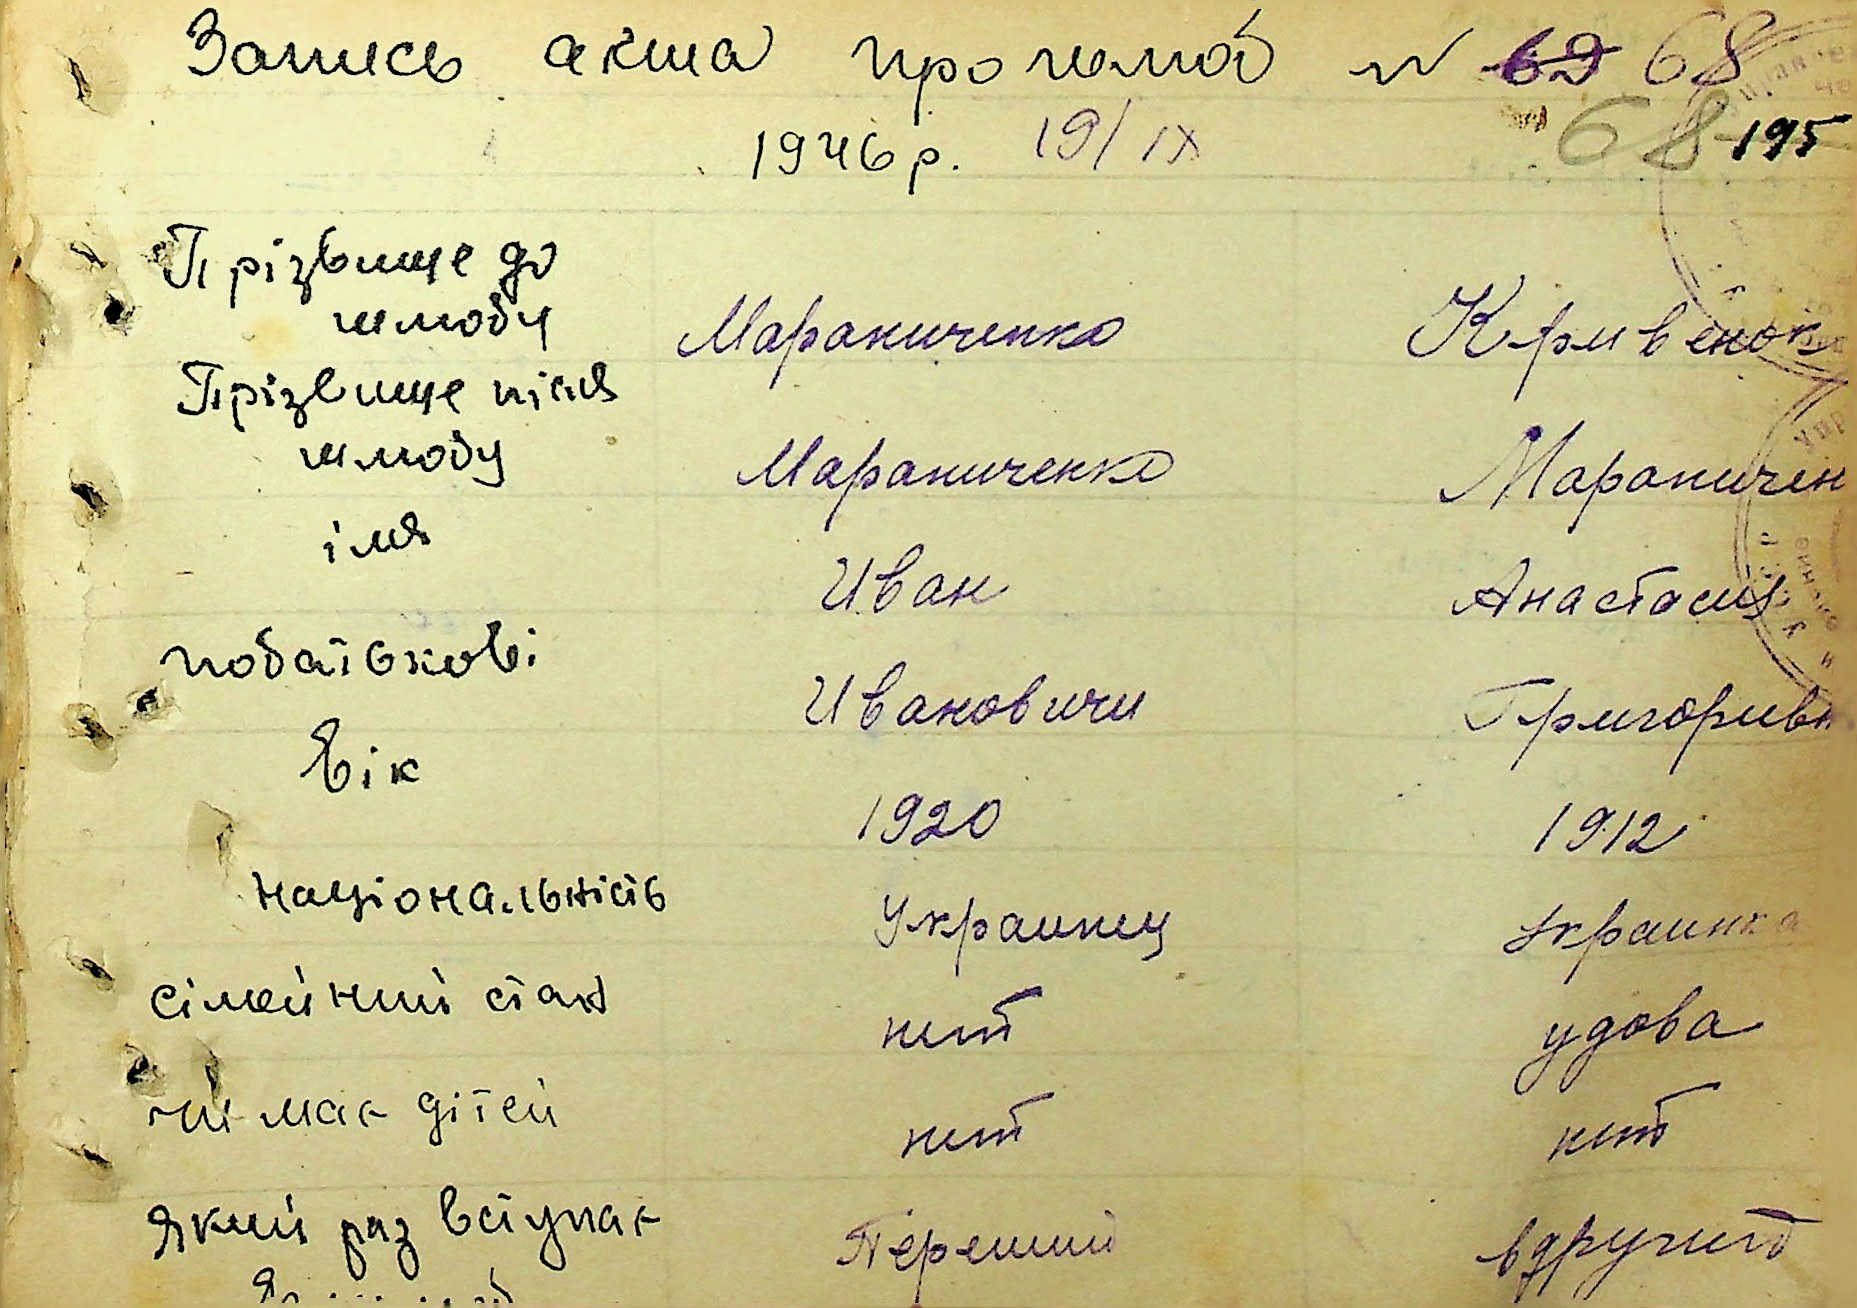 Запись акта про шлюб N 69 68
1946 р. 19/IX 68 195
Прізвище до
шлюбу Мараниченко Кривенок
Прізвище після
шлюбу Мараниченко Мараничен
імя Иван Анастасия
побатькові Ивановичи Григоривн
Вік 1920 1912
Національність Украинец Украинка
сімейний стан нит удова
чи має дітей нит нит
який раз вступає Перший вдругий